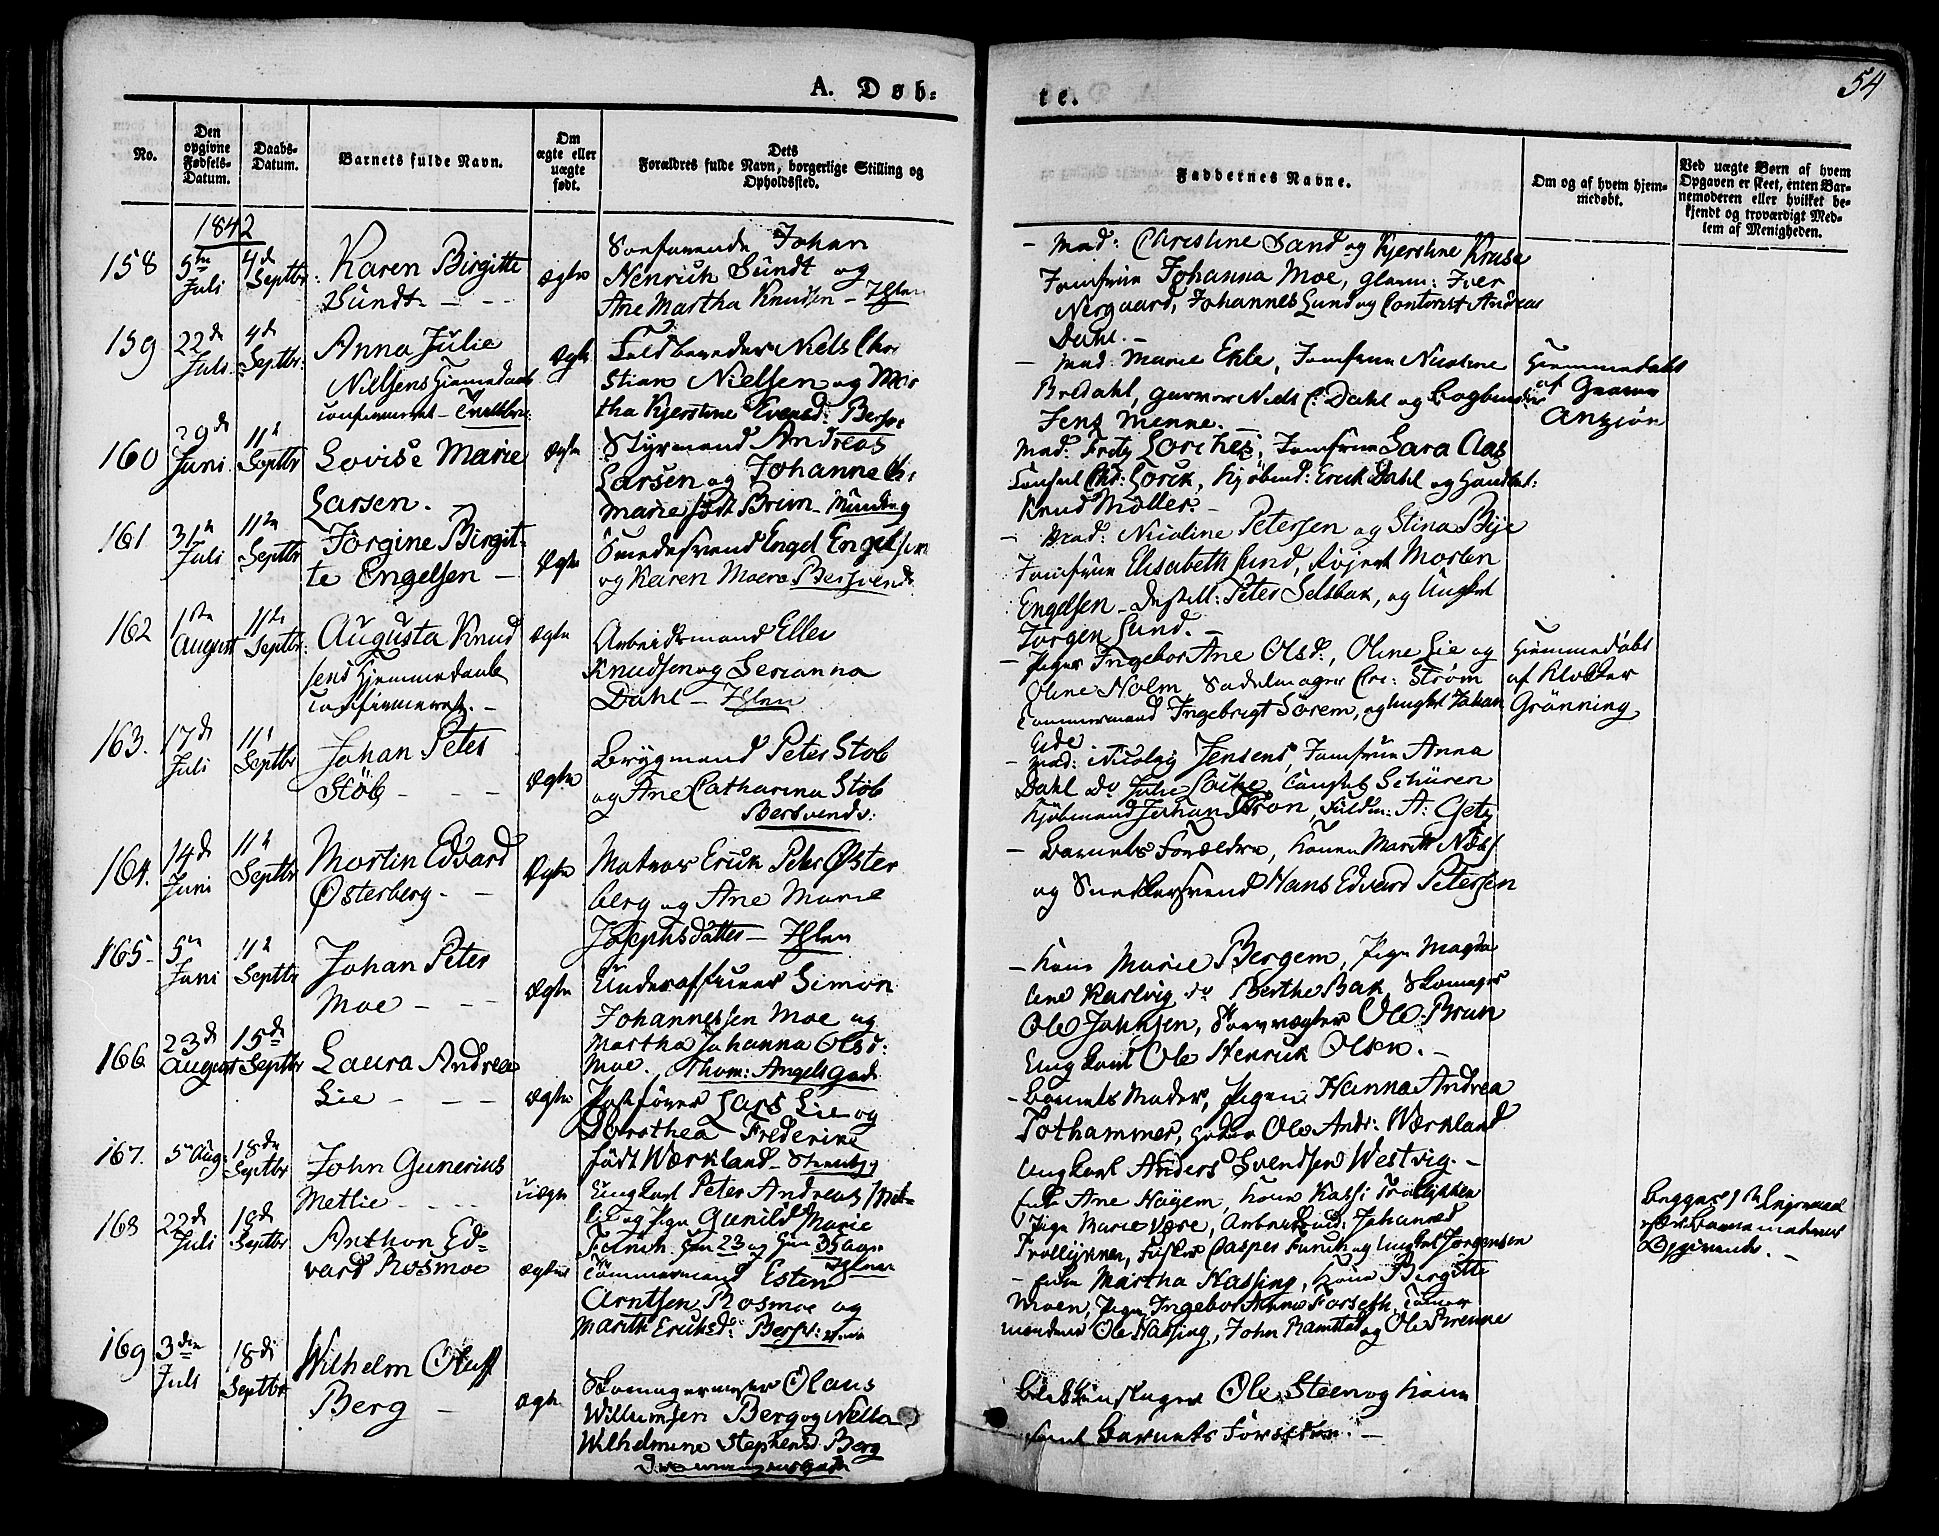 A. Døb-
te.
54
No.
Den opgivne Fødsels-Datum.
Daabs-Datum.
Barnets fulde Navn.
Om ægte eller uægte født.
Dets Forældres fulde Navn, borgerlige Stilling og Opholdssted.
Faddernes Navne.
Om og af hvem hjemmedøbt.
Ved uægte Børn af hvem
Opgaven er skeet, enten Bar-
nemoderen eller hvilket be-
kjendt og troværdigt Med-
lem af Menigheden.
1842
158
5te Juli
4de Septbr.
Karen Birgitte
Sundt
ægte
Johan
Henrich Sundt og
Ane Martha Knudsen - Ihlen
- Mad: Christine Sand og Kjerstine Kruse
Jomfrue Johanna Moe, Glarm: Iver
Nergaard, Johannes Lund og Contorist Andreas
Dahl. -
159
22de Juli
4de Septbr.
Anna Julie
Nielsens Hjemmedaab
confirmeret
ægte
Feldbereder Niels Chri
stian Nielsen og Mar
tha Kjerstine Evensd:
- Mad: Marie Ekle, Jomfrue Nicoline
Bredahl, Garver Niels C: Dahl og Bogbinder
Jens Menne. -
Hjemmedøbt
af
160
29de Juni
11te Septbr
Lovise Marie
Larsen. -
ægte
Styrmand Andreas
Larsen og Johanne
Marie født Brun -
Mad: Fritz Lorches, Jomfrue Sara Aas
Consul Chr: Lorck, Kjøbmd: Erich Dahl og Handlsb:
Knud Møller. -
161
31te Juli
11te Septbr
Jørgine Birgit-
te Engelsen -
ægte
Smedesvend Engel Engelsen
og Karen Moere Bersvend:
- Mad: Nicoline Petersen og Stina Bye
Jomfrue Elisabeth Lund, Morten
Engelsen - Destill: Peter Selsbak, og Ungkel
Jørgen Lund. -
162
1ste August
11te Septbr.
Augusta Knud
sens Hjemmedaab
confirmeret. -
ægte
Arbeidsmand Eller
Knudsen og Serianna
Dahl - Ihlen
- Piger Ingebor Ane Olsd:, Oline Lie og
Oline Holm, Sadelmager Chr: Strøm
Tømmermand Ingebrigt Sørem, og Ungkel Johan
Eide.
Hjemmedøbt
af Klokker
Grønning
163.
17de Juli
11te Septbr
Johan Peter
Støb
ægte
Brygmand Peter Støb
og Ane Catharina Støb
Bersvends:
- Mad: Nicolay Jensens, Jomfrue Anna
Dahl do Julie Consul Schüren
Kjøbmand Johan A: Getz
164.
14de Juni
11te Septbr
Mortin Edvard
Østerberg. -
ægte
Matros Erick Peter Øster
berg og Ane Marie
Josephsdatter - Ihlen
- Barnets Forældre, Konen Marit Næss
og Snedkersvend Hans Edvard Petersen
165
5te Juni
11te Septbr
Johan Peter
Moe
ægte
Underofficeer Simon
Johannessen Moe og
Martha Johanna Olsd:
Moe. Thom: Angels Gade
- Kone Marie Bergem, Pige Magda
lene do Berthe Bak, Skomager
Ole Johnsen, Ole Brun
Ungkarl Ole Henrick Olsen. -
166
23de August
15de Septbr
Laura Andrea
Lie
ægte
Postfører Lars Lie og
Dorothea Frederike
født Wærkland -
- Barnets Moder, Pigen Hanna Andrea
Tothammer, Ole Andr: Wærkland
Ungkarl Anders Svendsen Westvig. -
167.
5te Aug:
18de Septbr
John Gunerius
Metlie
uægte
Ungkarl Peter Andreas Met-
lie og Pige Gunild Marie
han 23 og hun 35 Aar
Ihlen
Enke Ane Høyem, Kone
Pige Marie Være, Johannes
Trollhynnen, Fisker Casper og Ungkel Jørgensen
Begges 1te Leiermaal
efter Barnemoderens
Opgivende. -
168
22de Juli
18de Septbr
Anthon Ed-
vard Rosmoe
ægte
Tømmermand Esten
Arntsen Rosmoe og
Marith Ericksd:
- Enke Martha Hassing, Kone Birgitte
Moen, Pige Ingebor Anne Forseth, Tømmer
mændene Ole Hassing, John Ramstad og Ole Brenne
169
3die Juli
18de Septbr
Wilhelm Oluf
Berg -
ægte
Skomagermester Olaus
Willumsen Berg og
Wilhelmine Stephensd Berg
Blikkenslager Ole Steen og Kone
samt Barnets Forældre. -